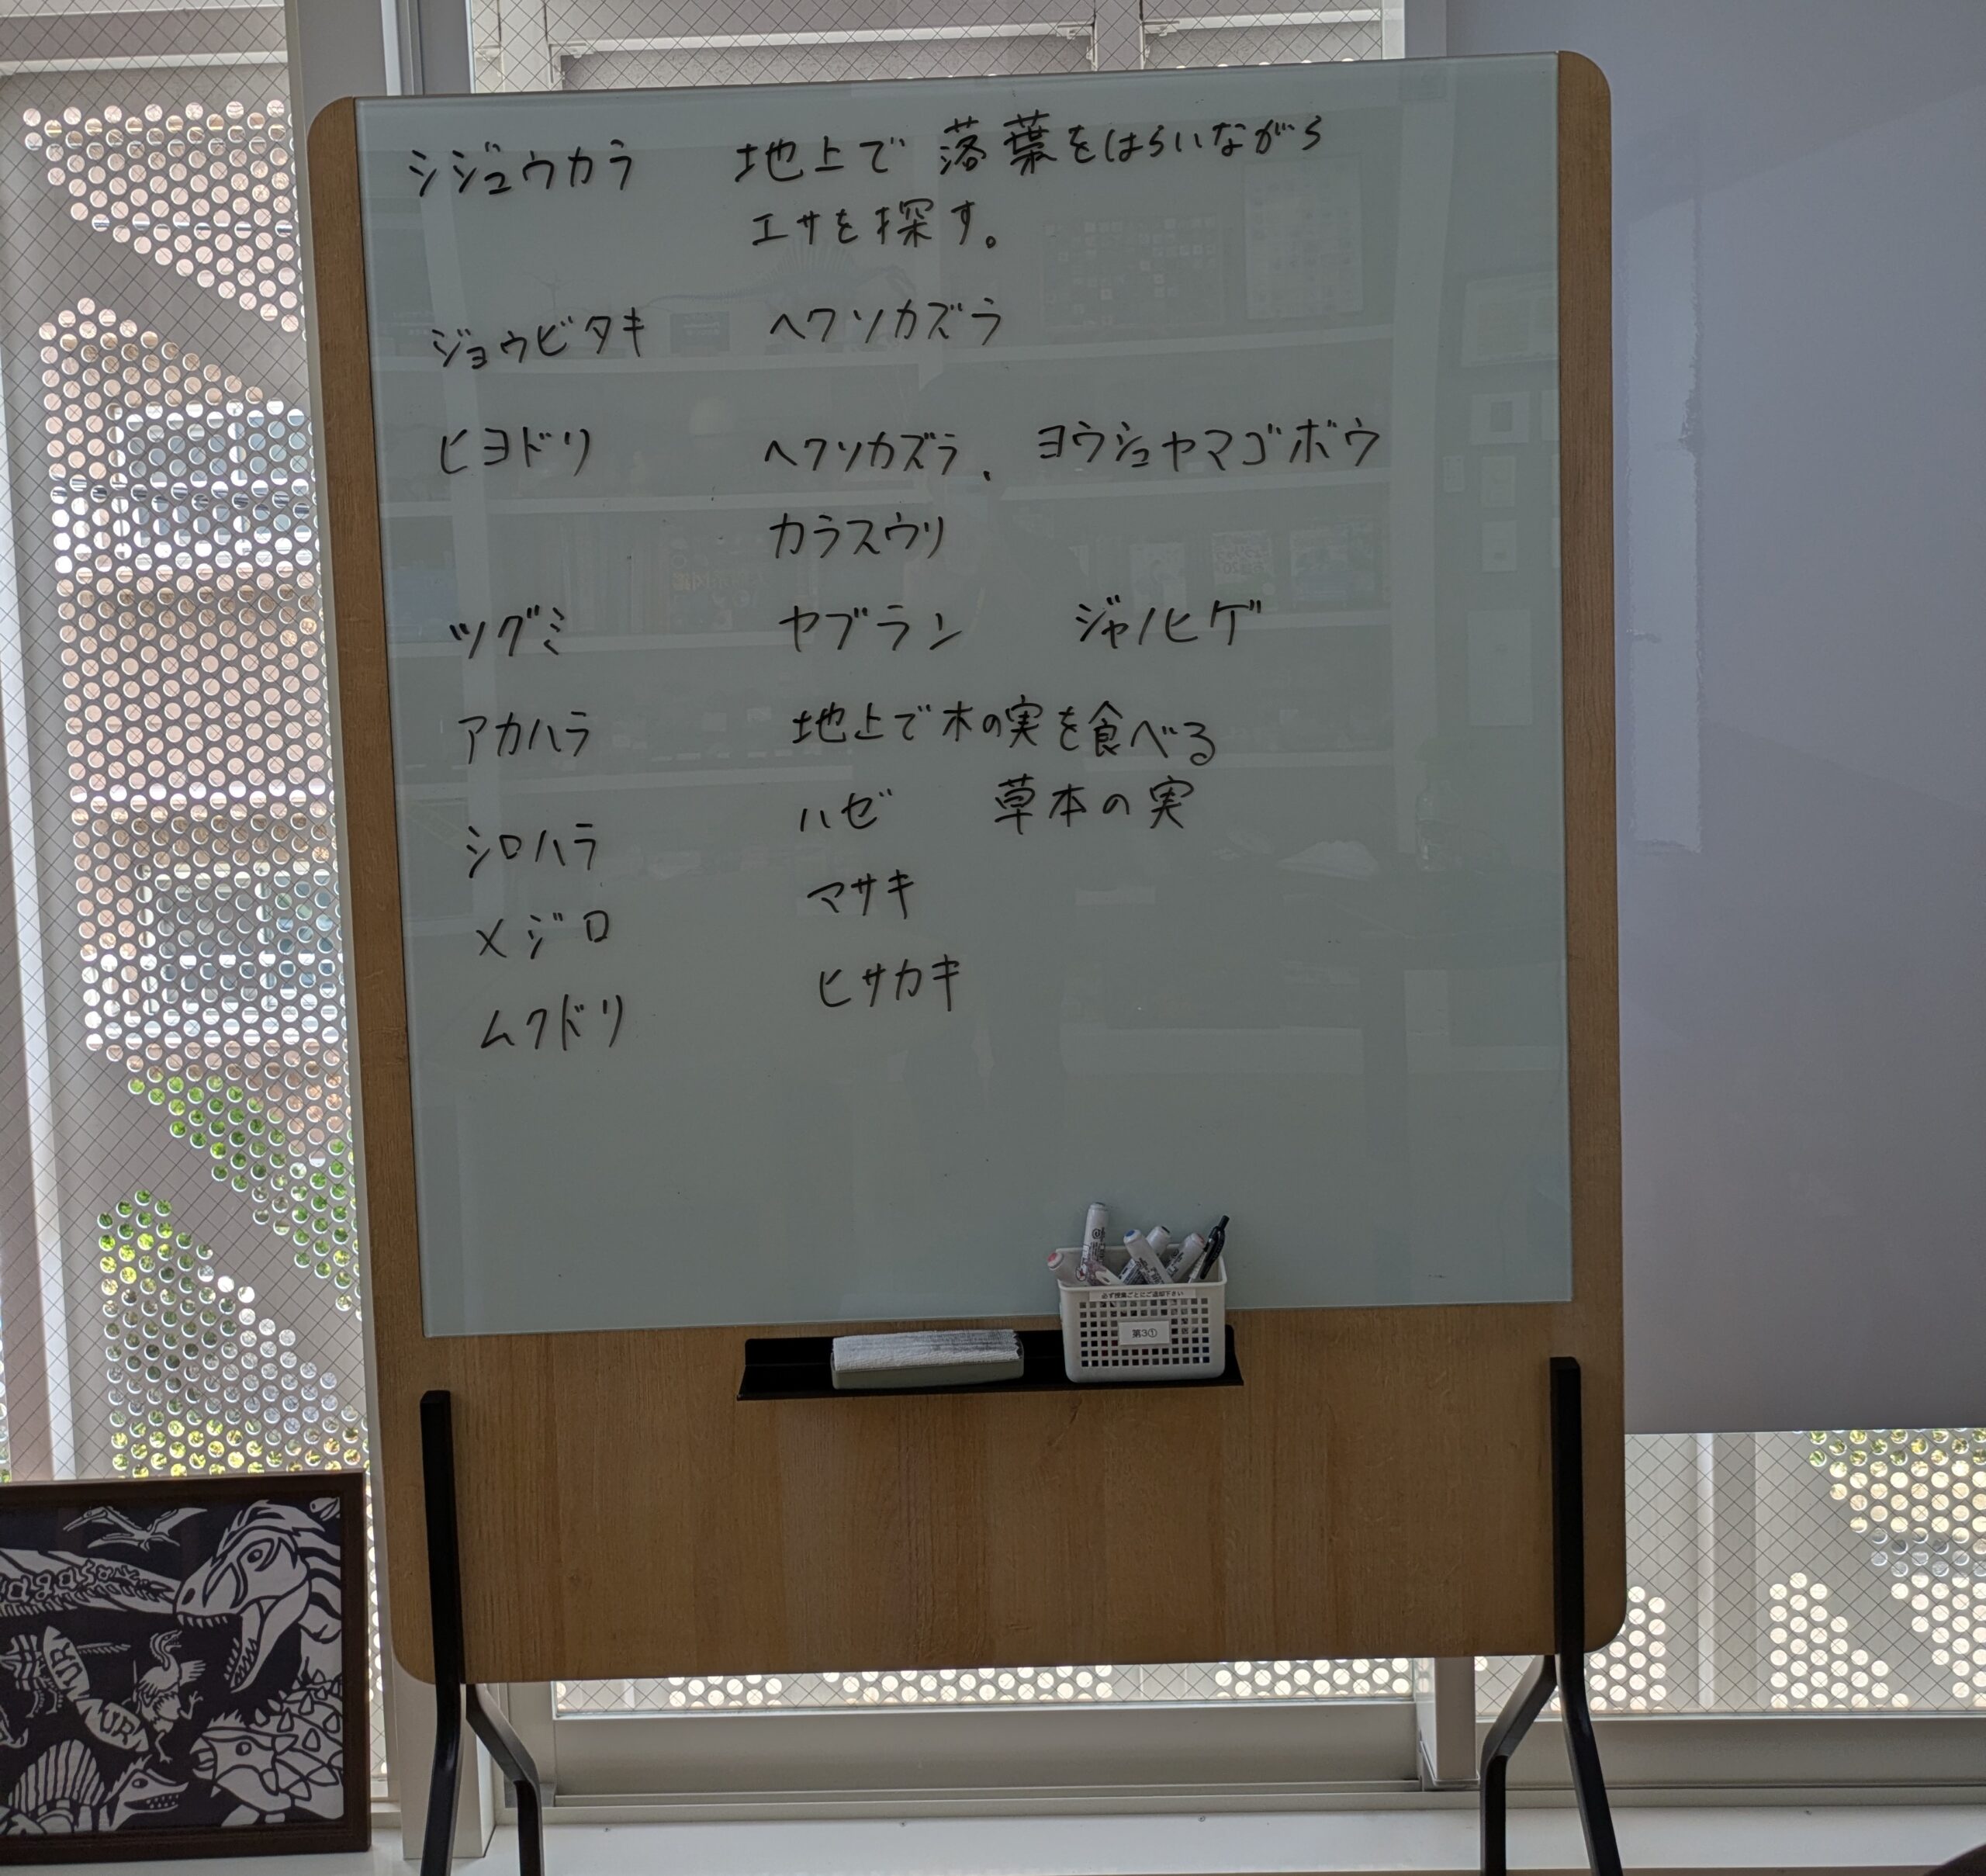 シジュウカラ 地上で 落葉をはらいながら
エサを探す。
ジョウビタキ ヘクソカズラ
ヒヨドリ ヘクソカズラ、ヨウシュヤマゴボウ
カラスウリ
ツグミ ヤブラン ジャノヒゲ
アカハラ 地上で木の実を食べる
シロハラ ハゼ 草本の実
メジロ マサキ
ムクドリ ヒサカキ
必ず授業ごとにご返却下さい
第3①